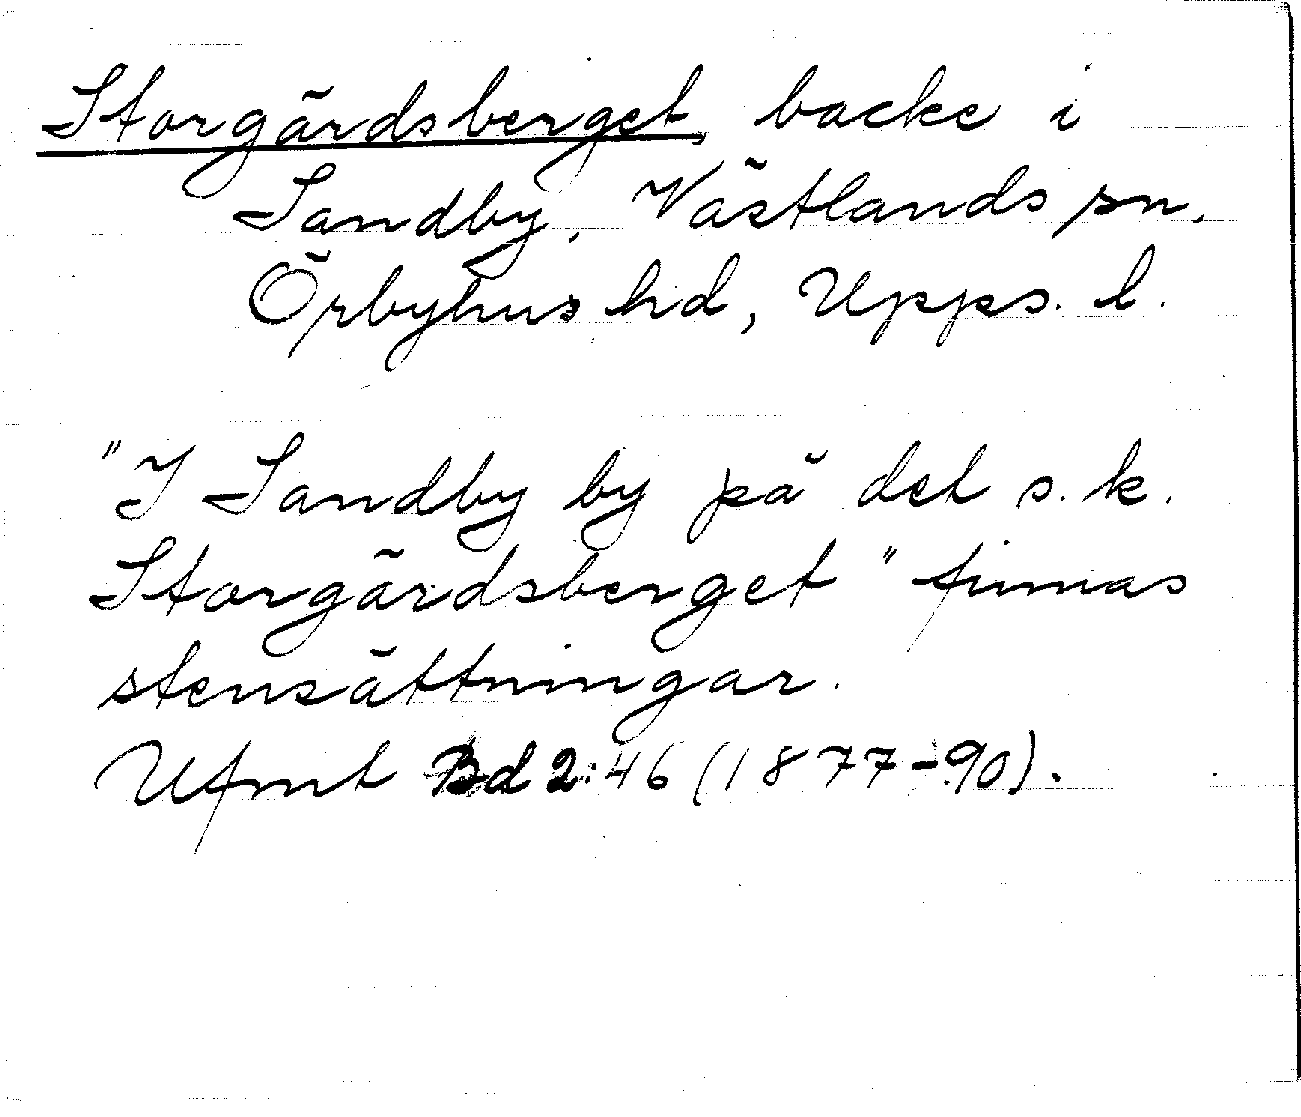 Storgårdsberget, backe i
Sandby, Västlands sn,
Örbyhus hd, Upps. l.
"I Sandby by på det s.k.
Storgårdsberget" finnas
stensättningar.
Ufmt Bd 2:46 (1877-90).